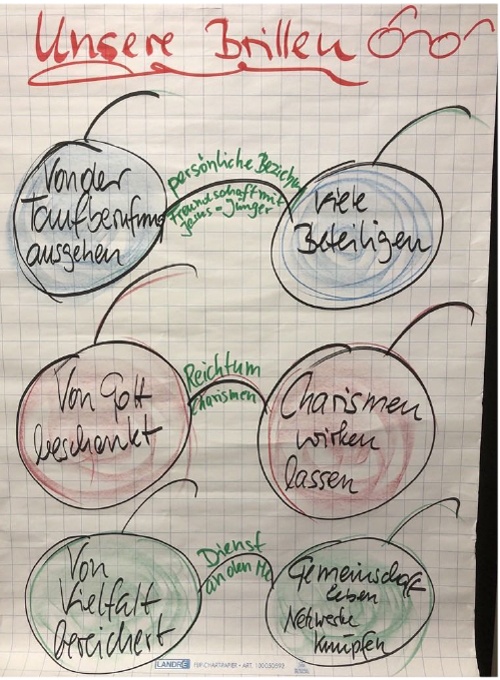 Unsere Brillen
Von der
Taufberufung
ausgehen
persönliche Beziehung
Freundschaft mit
Jesus-Jünger
Viele
Beteiligen
Von Gott
beschenkt
Reichtum
Charismen
Charismen
wirken
lassen
Von
Vielfalt
bereichert
Dienst
an den
Gemeinschaft
leben
Netzwerke
knüpfen
LANDRÉ FLIPCHARTPAPIER • ART.